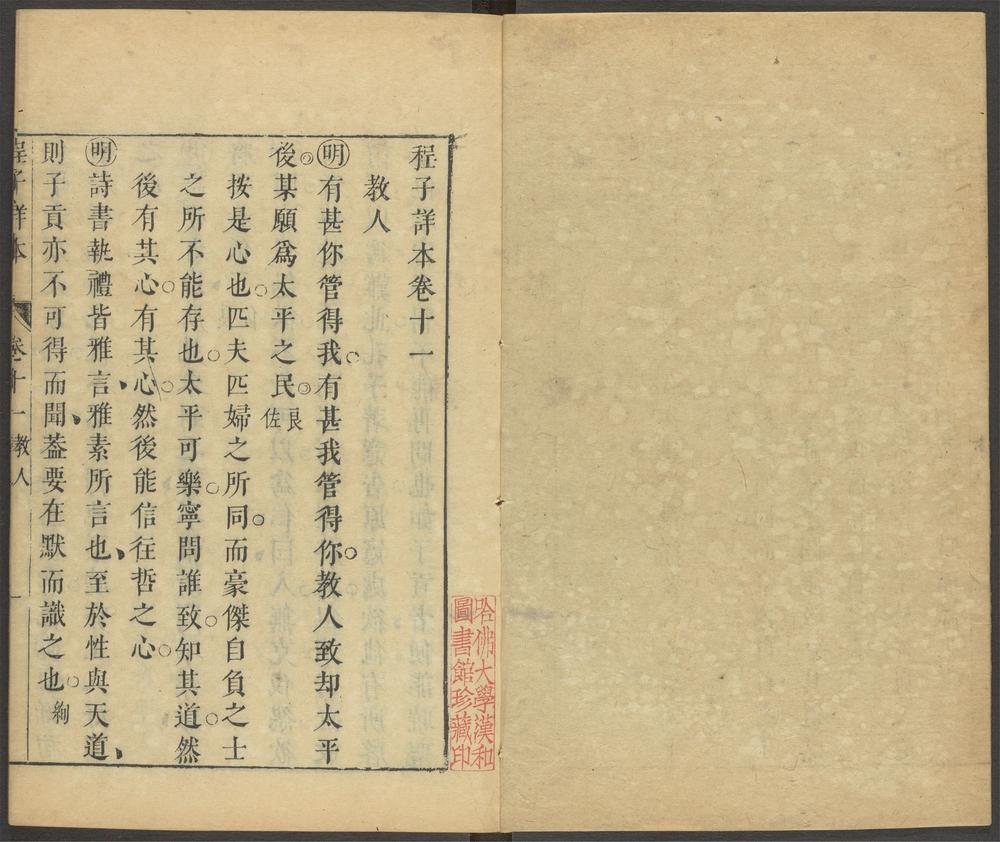 程子詳本卷十一
教人
明有甚你管得我有甚我管得你教人致却太平
後某願爲太平之民良佐
按是心也匹夫匹婦之所同而豪傑自負之士
之所不能存也太平可樂寧問誰致知其道然
後有其心有其心然後能信往哲之心
明詩書執禮皆雅言雅素所言也至於性與天道
則子貢亦不可得而聞葢要在默而識之也絢
程子詳本 卷十一 教人 一
哈佛大學漢和
圖書館珍藏印